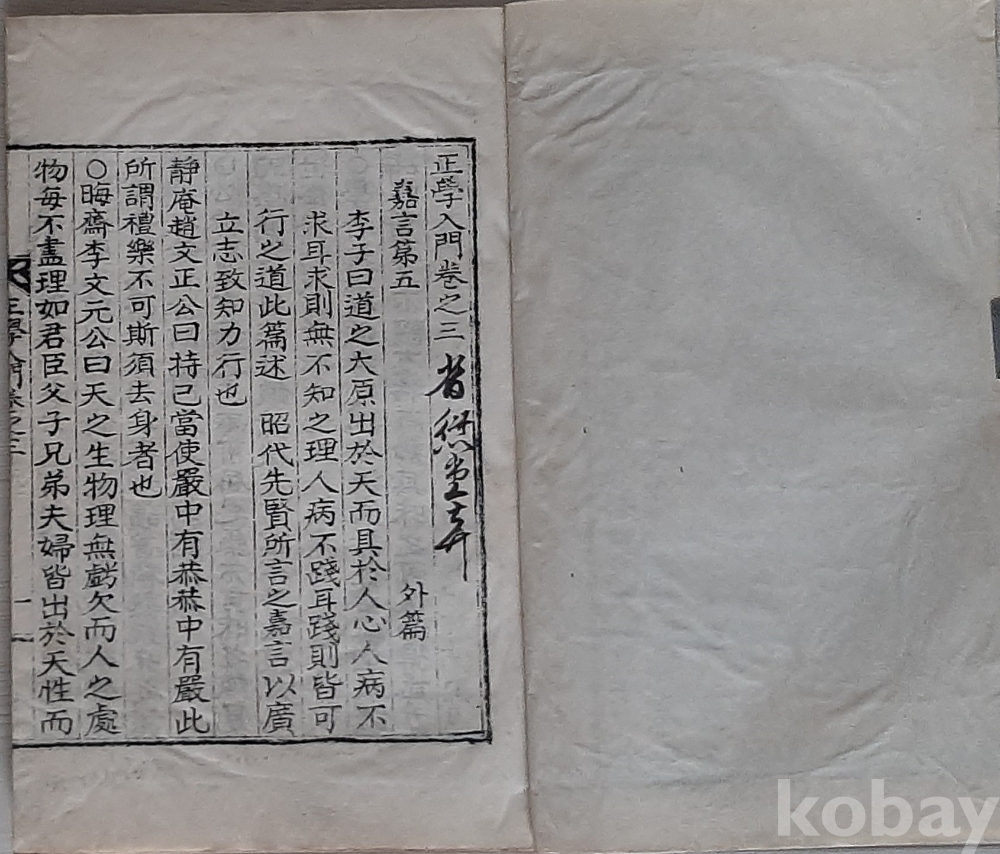 正學入門卷之三 堂
嘉言第五 外篇
李子曰道之大原出於天而具於人心人病不
求耳求則無不知之理人病不踐耳踐則皆可
行之道此篇述 昭代先賢所言之嘉言以廣
立志致知力行也
靜庵趙文正公曰持己當使嚴中有恭恭中有嚴此
所謂禮樂不可斯須去身者也
○晦齋李文元公曰天之生物理無虧欠而人之處
物每不盡理如君臣父子兄弟夫婦皆出於天性而
正學入門卷之三 一
kobay